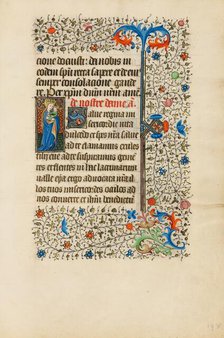 cione docuisti. da nobis in
eodem spū recta sapere et de eius
semper consolacione gaude
re. Per xp̄m dn̄m nr̄m. amē
de nostre dame. ā.
Salue regina mi
sericordie uita
dulcedo et spes nr̄a salue
ad te clamamus exules
filij eue ad te suspiramus gemen
tes et flentes in hac lacrimarum
ualle eya ergo aduocata nr̄a
illos tuos misericordes oculos ad
nos conuerte et ihm̄ benedictū